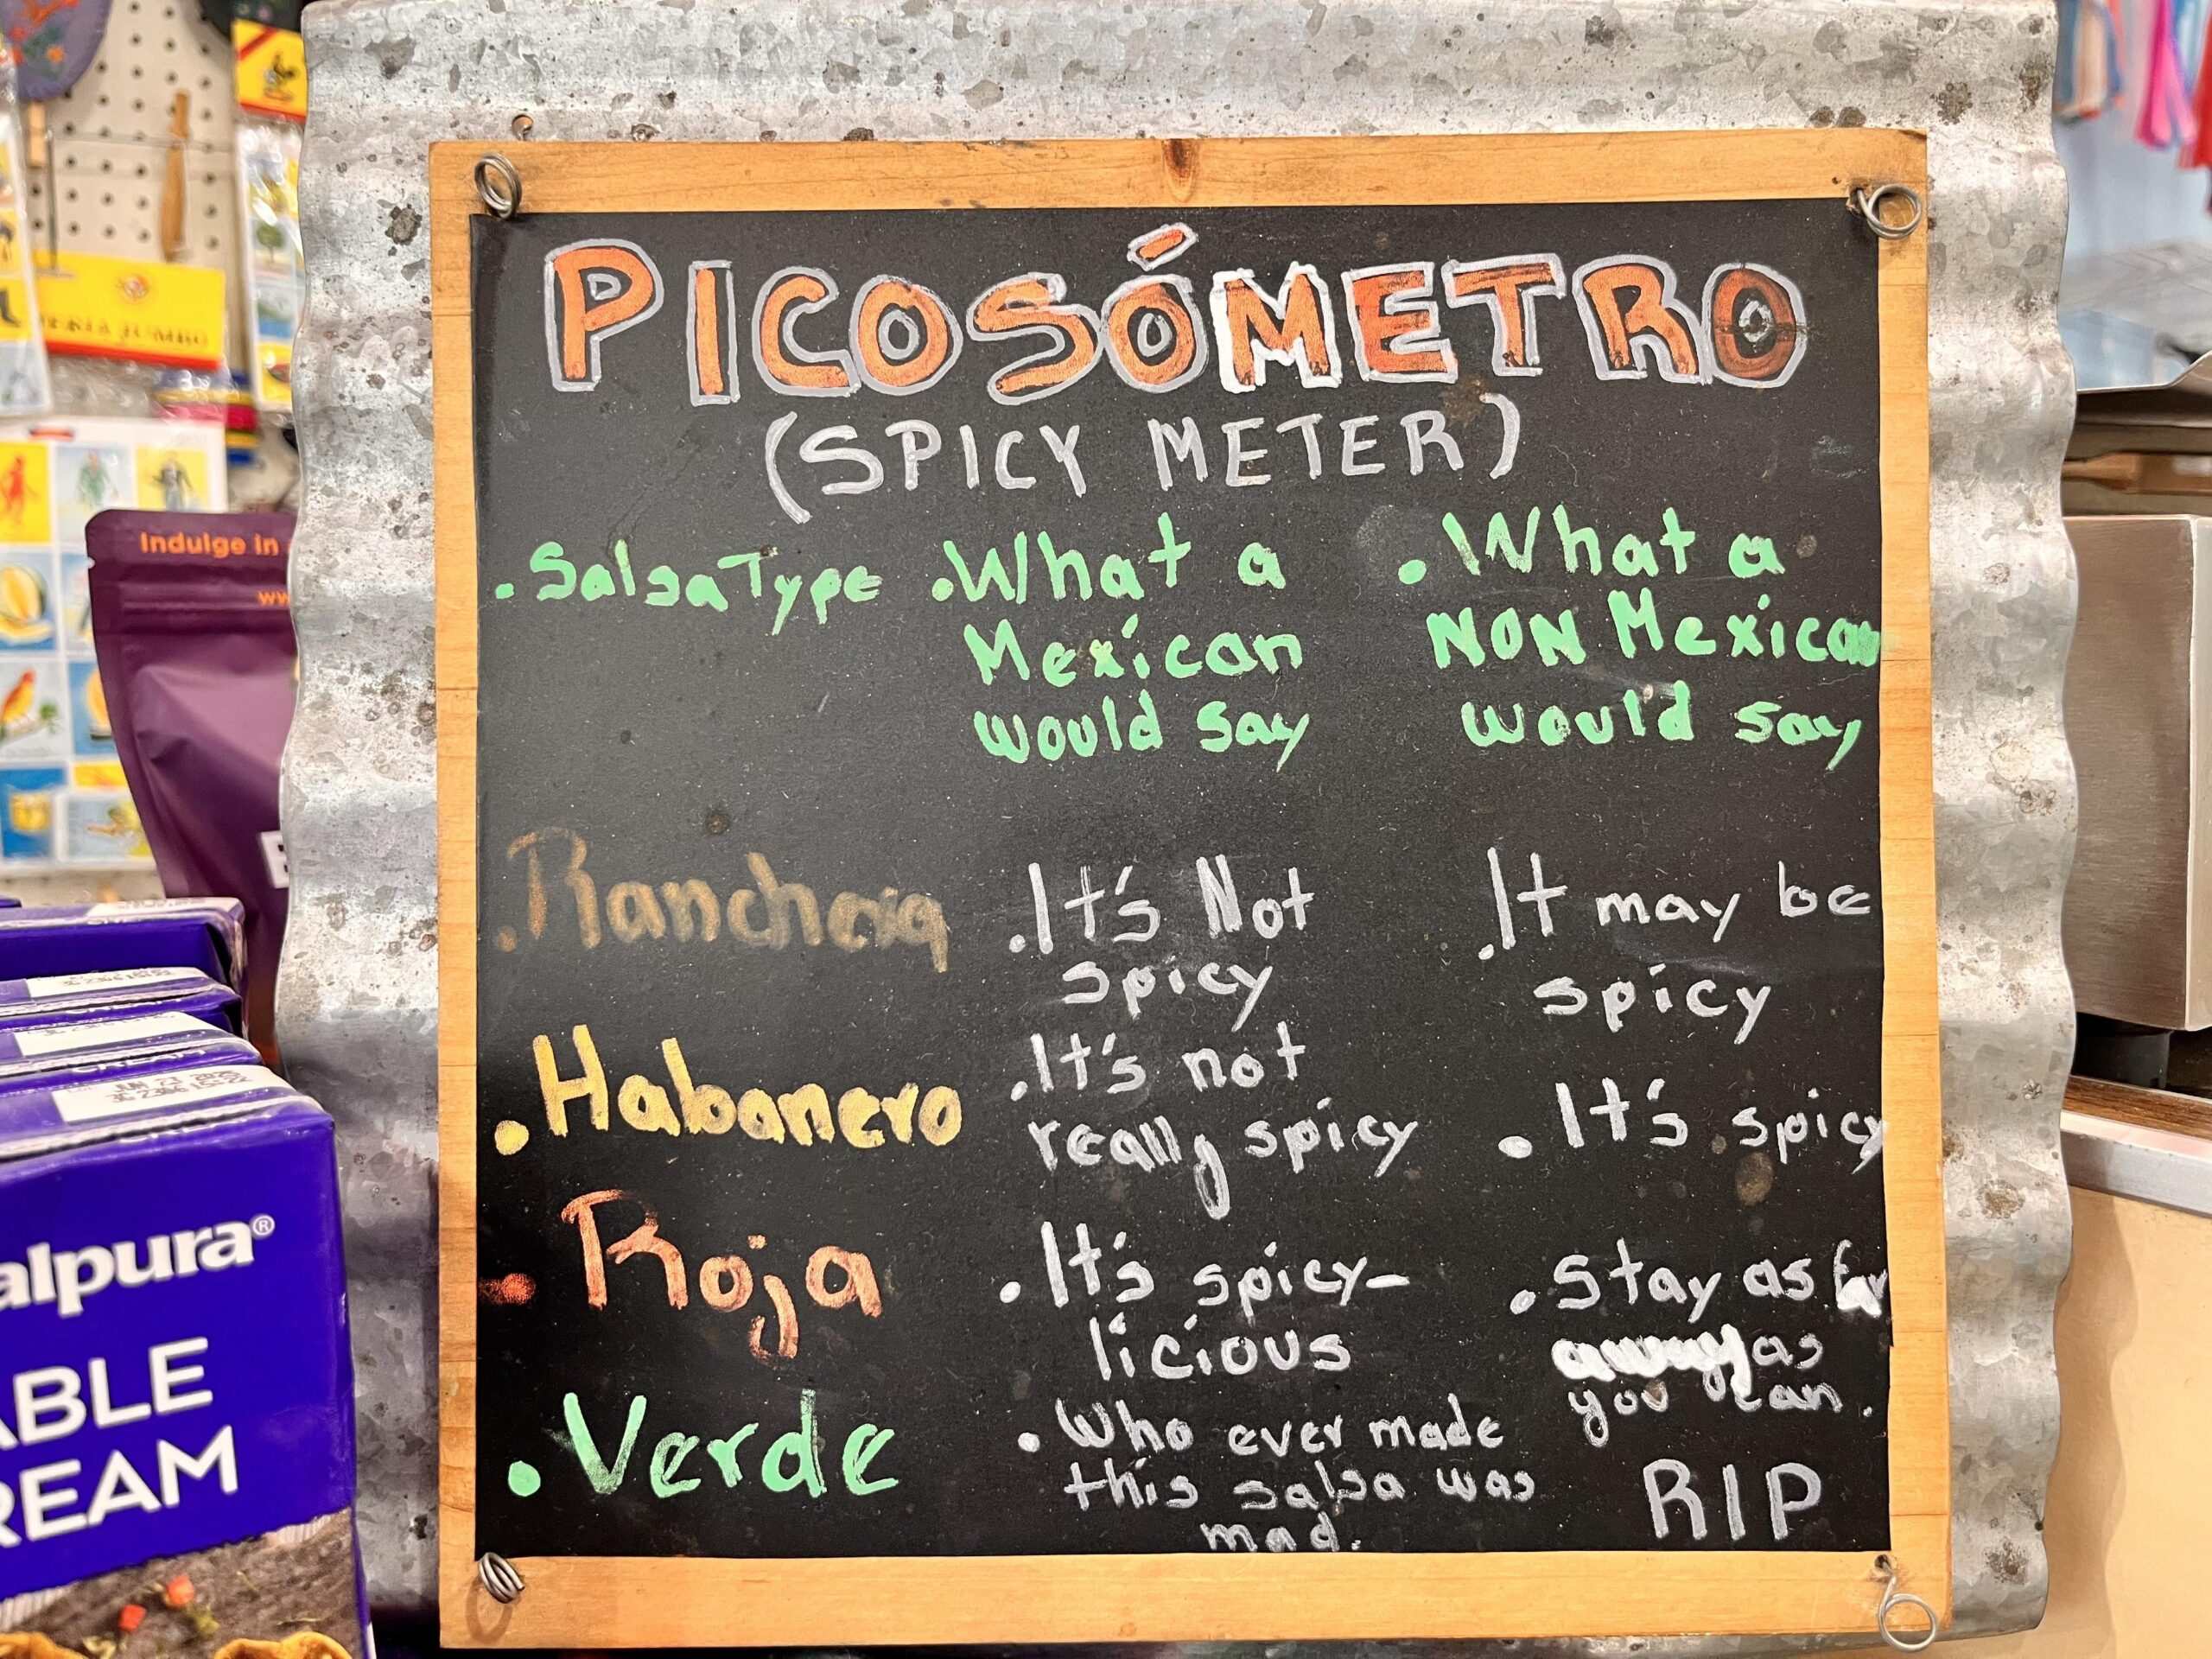 PICOSÓMETRO
(SPICY METER)
.Salsa Type
.What a
Mexican
would say
.What a
NON Mexican
would say
.Ranchera
.It's Not
spicy
.It may be
spicy
.Habanero
.It's not
really spicy
.It's spicy
.Roja
.It's spicy-
licious
.Stay as far
away as
you can.
.Verde
.Who ever made
this salsa was
mad.
RIP
Indulge in
alpura®
ABLE
REAM